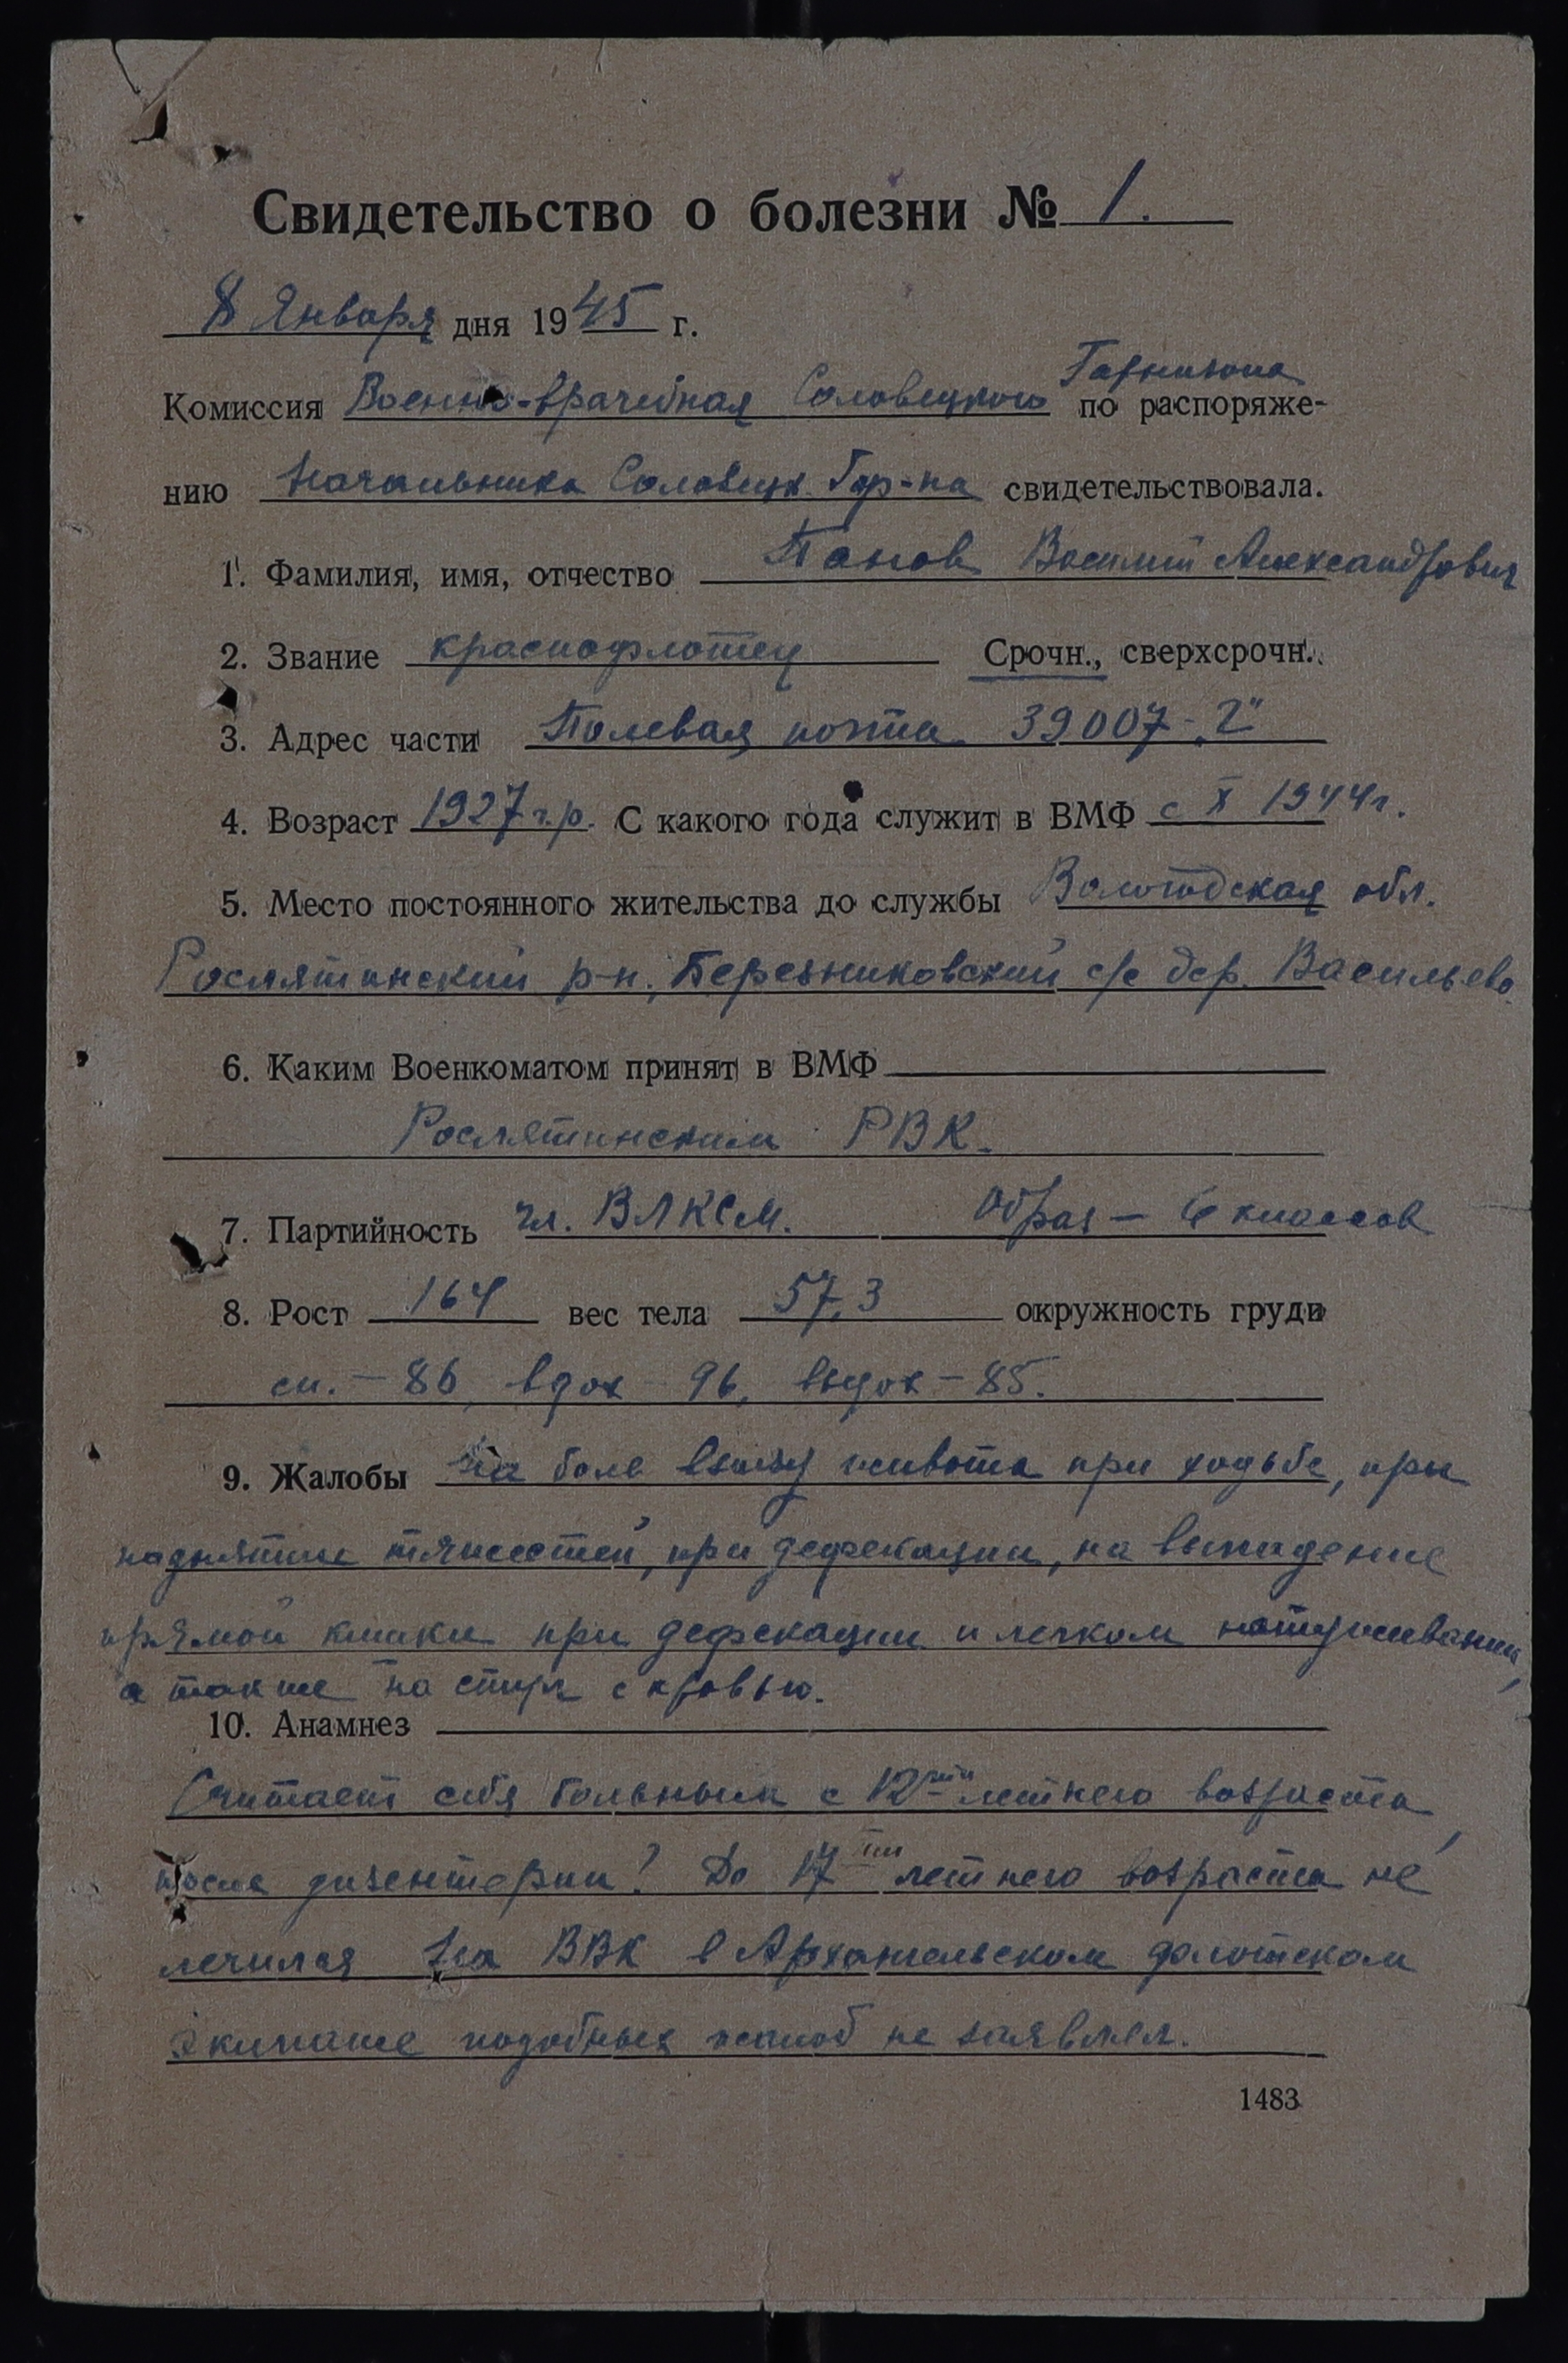 Свидетельство о болезни № 1.
8 Января дня 1945 г.
Гарнизона
Комиссия Военно-врачебная Соловецкого по распоряже-
нию Начальника Соловецк. Гар-на свидетельствовала.
1. Фамилия, имя, отчество Панов Василий Александрович
2. Звание краснофлотец Срочн., сверхсрочн.
3. Адрес части Полевая почта 39007-
4. Возраст 1927 г.р. С какого года служит в ВМФ с X 1944 г.
5. Место постоянного жительства до службы Вологодская обл.
Рослятинский р-н, Березниковский с/с дер. Васильево
6. Каким Военкоматом принят в ВМФ
Рослятинским РВК.
7. Партийность чл. ВЛКСМ. Образ — 6 классов
8. Рост 164 вес тела 57,3 окружность груди
сп. - 86, вдох - 96, выдох - 85.
9. Жалобы На боли внизу живота при ходьбе, при
поднятии тяжестей, при дефекации, на выпадение
прямой кишки при дефекации и легком натуживании,
а также на стул с кровью.
10. Анамнез
Считает себя больным с 12ти летнего возраста,
после дизентерии! До 17ти летнего возраста не
лечился На ВВК в Архангельском флотском
экипаже подобных жалоб не заявлял.
1483